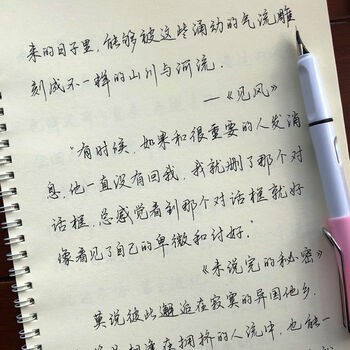 来的日子里，能够被这些涌动的气流雕
刻成不一样的山川与河流．
——《见风》
"有时候，如果和很重要的人发消
息，他一直没有回我，我就删了那个对
话框，总感觉看到那个对话框就好
像看见了自己的卑微和讨好."
《未说完的秘密》
莫说彼此邂逅在寂寞的异国他乡．
在拥挤的人流中，也能一